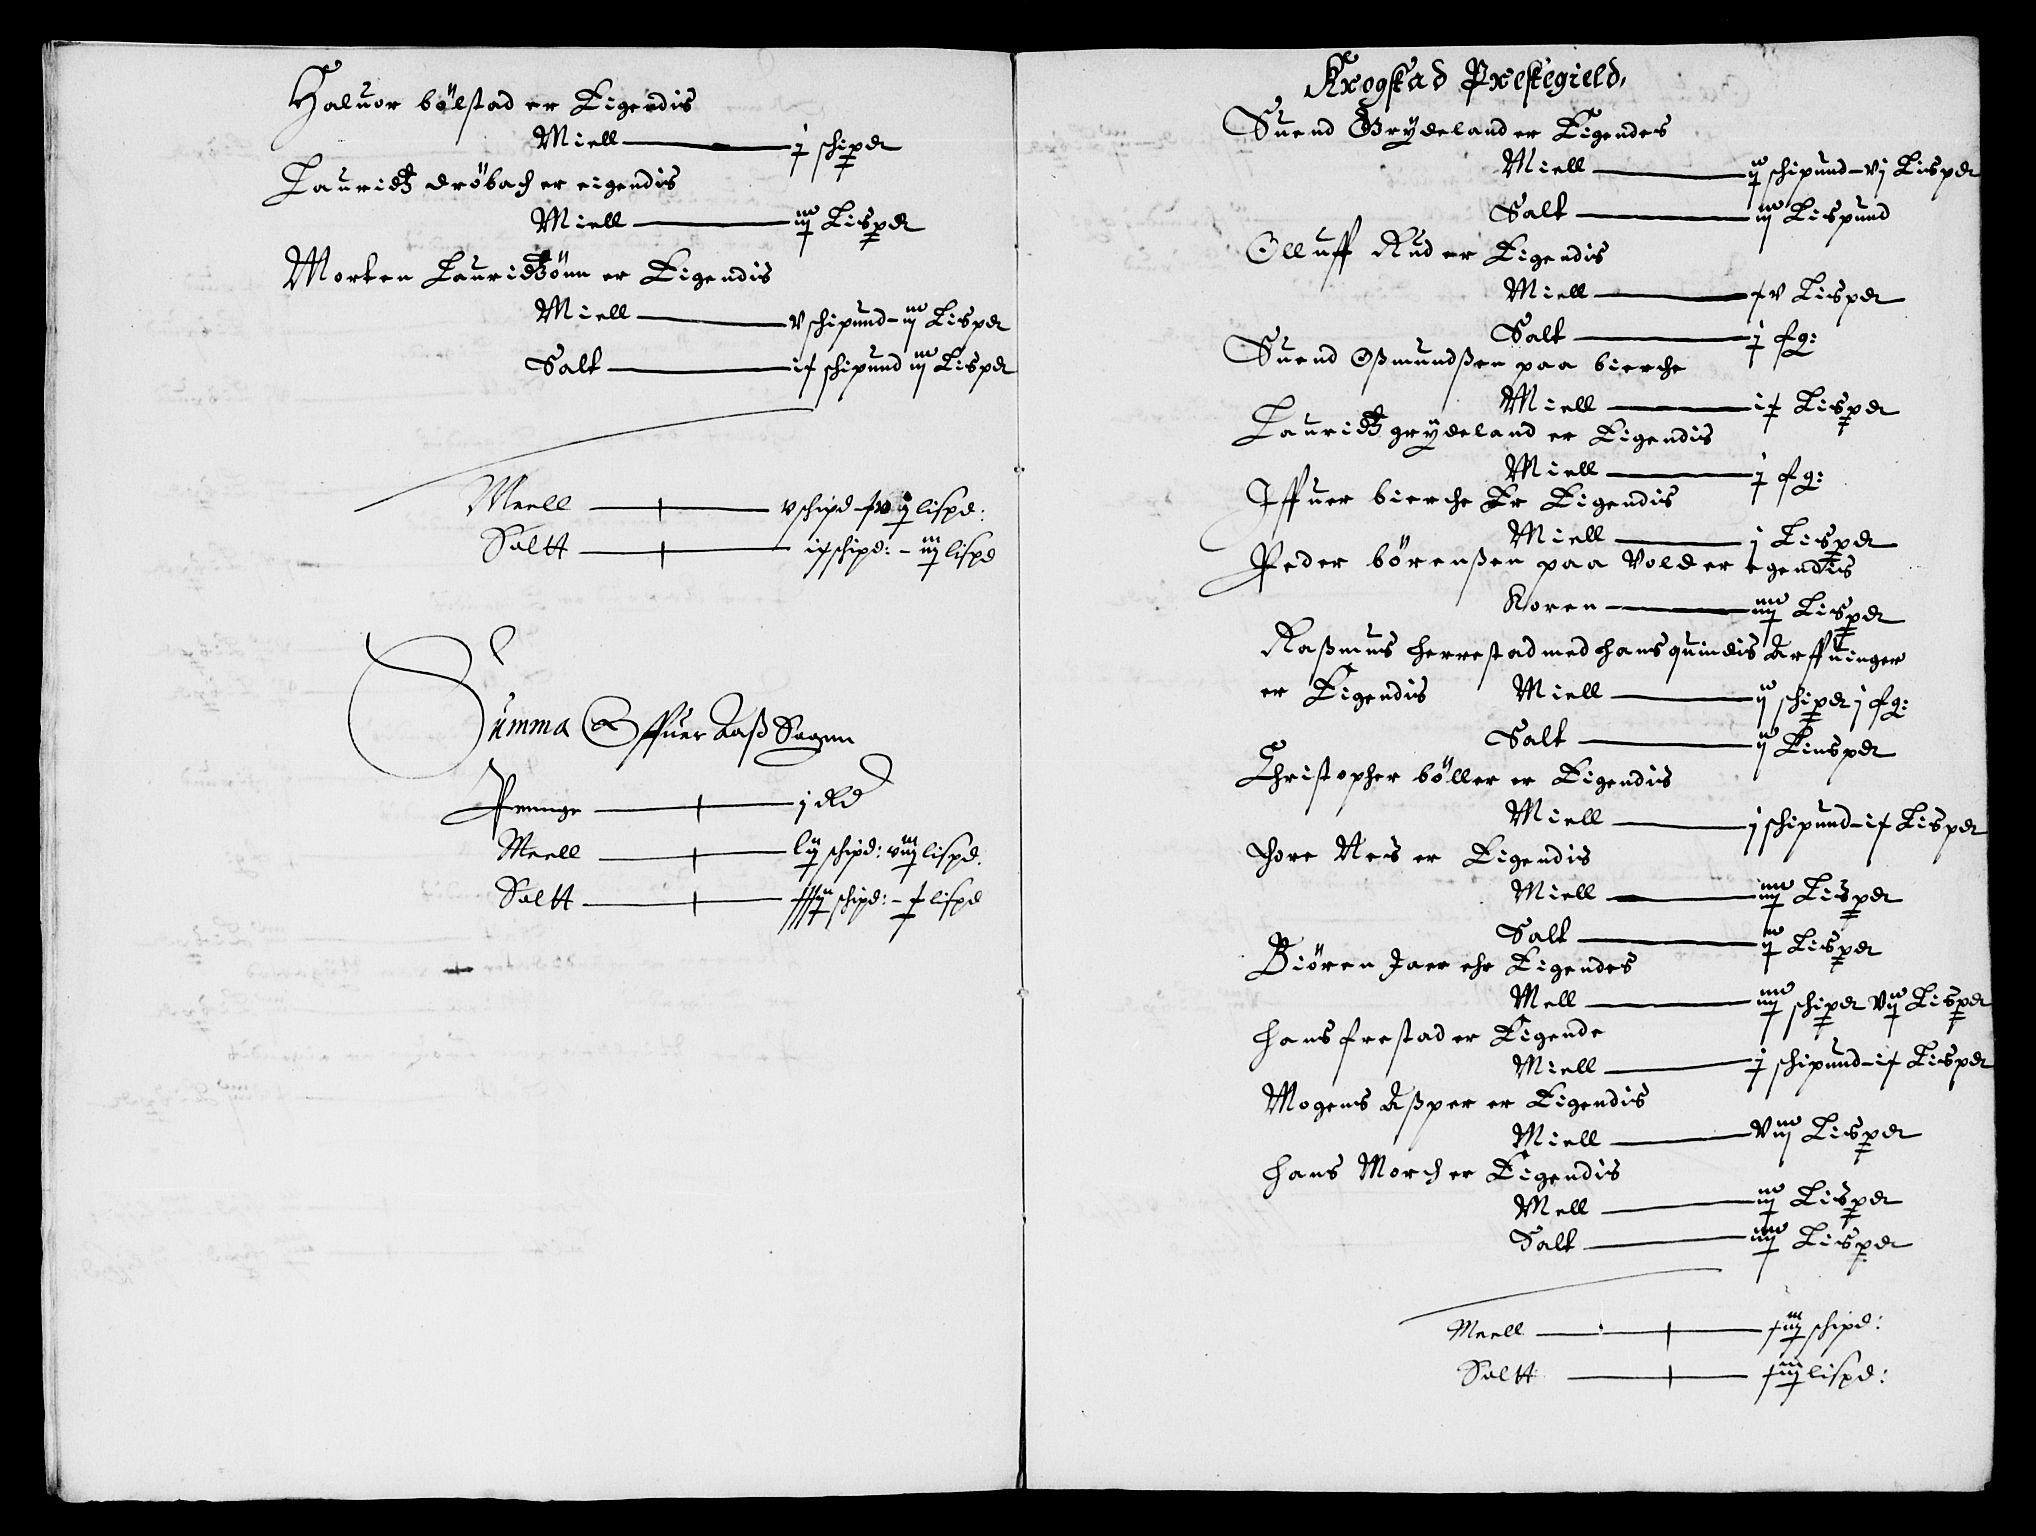 Haluor bölstad er Eigendis
Miell — j schipdt
Lauridtz dröbach er eigendis
Miell — iij Lispdt
Morten Lauridtzönn er Eigendis
Miell — v schipund - iij Lispdt
Salt — ix schipund iij Lispdt
Meell — v schipd xv ij lispd:
Saltt — ix schipd: - iij lispd
Summa Offuer Aaß Sognn
Pennge — j Rd
Meell — lij schipd: viij lispd.
Saltt — xxxij schipd: - x lispd
Krogstad Prestegield,
Suend Grÿdeland er Eigendes
Miell — ij schipund - vj Lispdt
Salt — iij Lispund
Olluff Rud er Eigendis
Miell — xv Lispdt
Salt — j fg:
Suend Oßmundßen paa bierche
Miell — ix Lispdt
Lauridtz grÿdeland er Eigendis
Miell — j fg:
Iffuer bierche Er Eigendis
Miell — j Lispdt
Peder börenßen paa Vold er egendis
Koren — iiij Lispdt
Raßmus herrestad med hans quindis Arffuinger
er Eigendis Miell — ij schipdt j fg:
Salt — ij Linspdt
Christopher böller er Eigendis
Miell — j schipund - ix Lispdt
Thore Nes er Eigendis
Miell — iiij Lispdt
Salt — ij Lispdt
Biören Jaer ehr Eigendes
Mell — iiij schipdt vij Lispdt
hans frestad er Eigende
Miell — j schipund - ix Lispdt
Mogens Aßper er Eigendis
Miell — viij Lispdt
hans Morch er Eigendis
Mell — iij Lispdt
Salt — iiij Lispdt
Meell — xiij schipd:
Saltt — xiiij lispd: